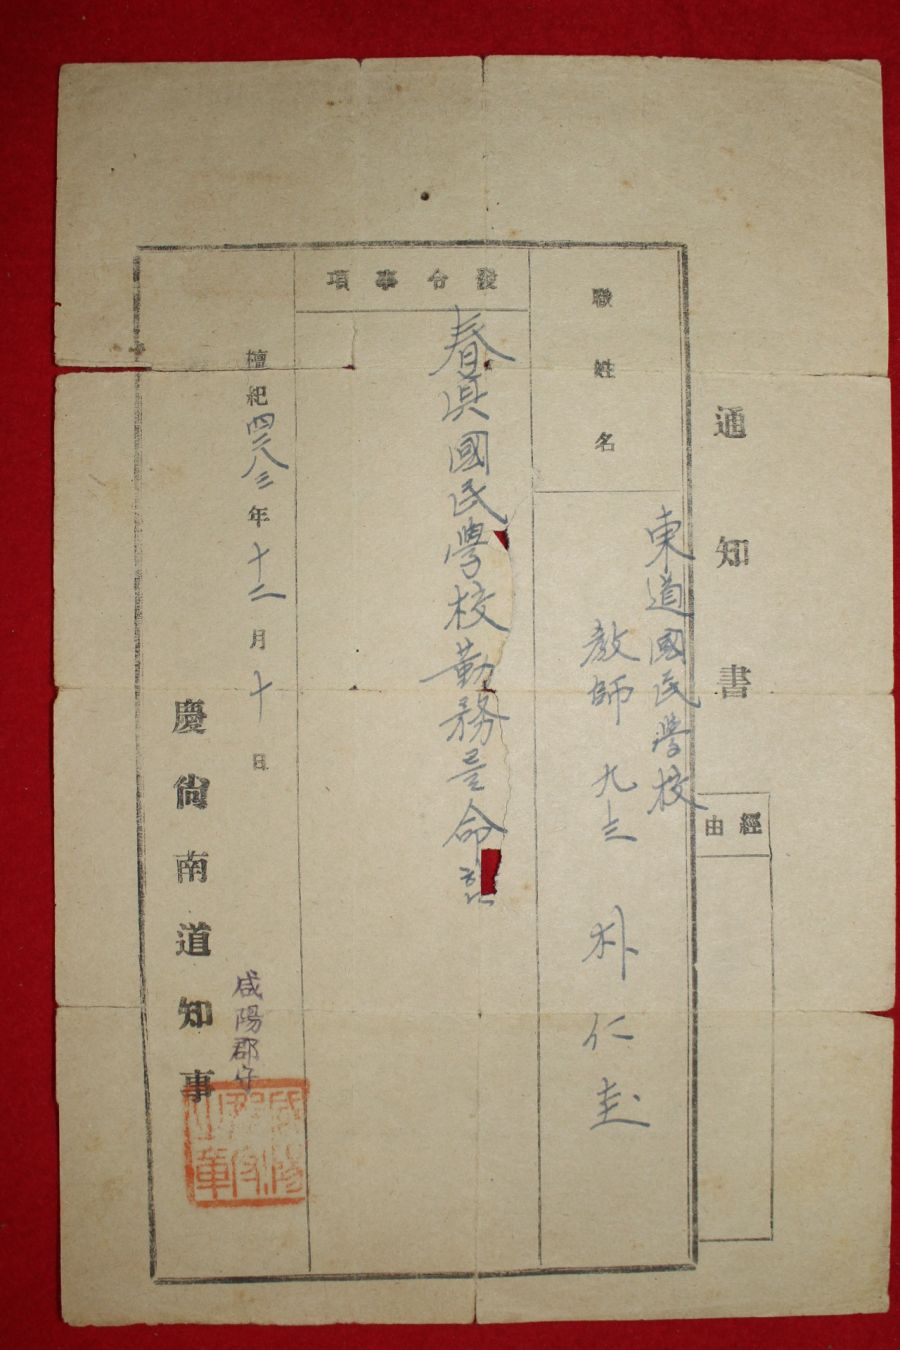 通知書
經由
職姓名
東道國民學校
教師 九 朴仁圭
發令事項
春眞國民學校勤務를命함
檀紀四二八三年十二月十日
咸陽郡守
慶尙南道知事
咸陽
郡守
之章